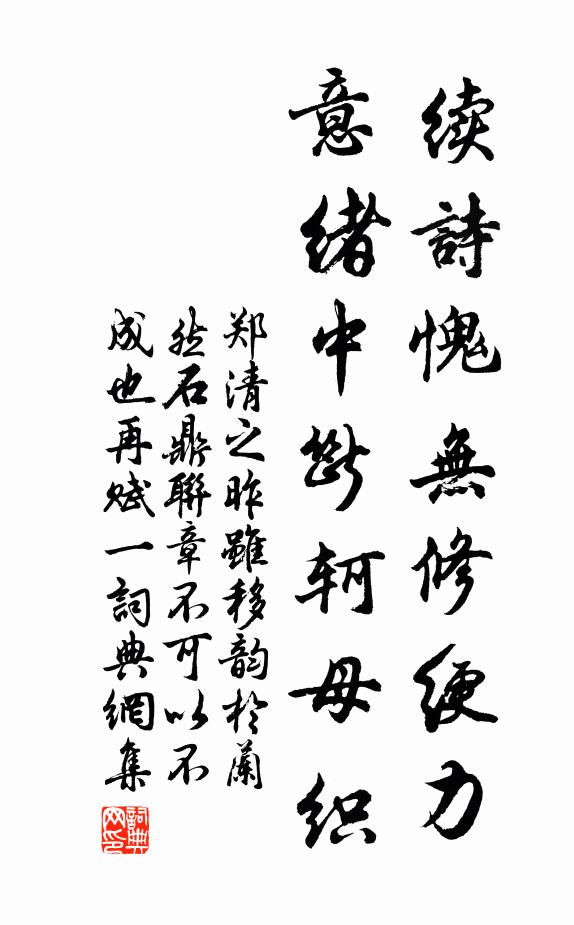 续詩愧無修綆力
意緒中斷轲母织
郑清之昨雖移韵於蘭
然石鼎聯章不可以不
成也再赋一詞典網集
詞典网印